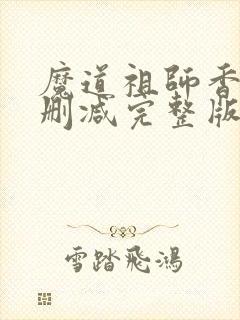 魔道祖師香
刪減完整版
雪踏飛鴻